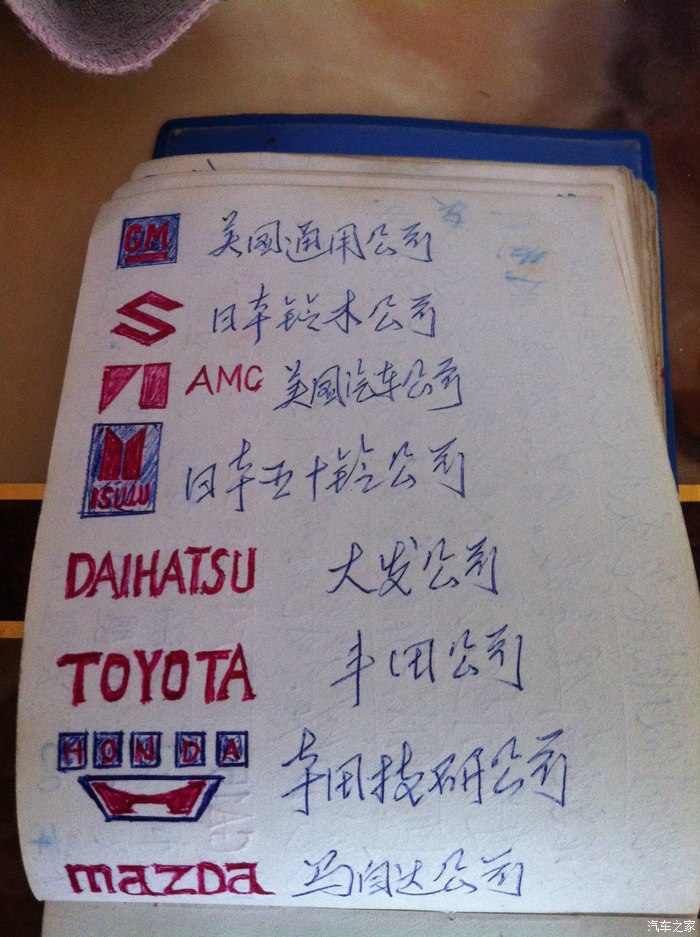 GM 美国通用公司
S 日本铃木公司
AMC 美国汽车公司
ISUZU 日本五十铃公司
DAIHATSU 大发公司
TOYOTA 丰田公司
HONDA 本田技研公司
mazda 马自达公司
汽车之家